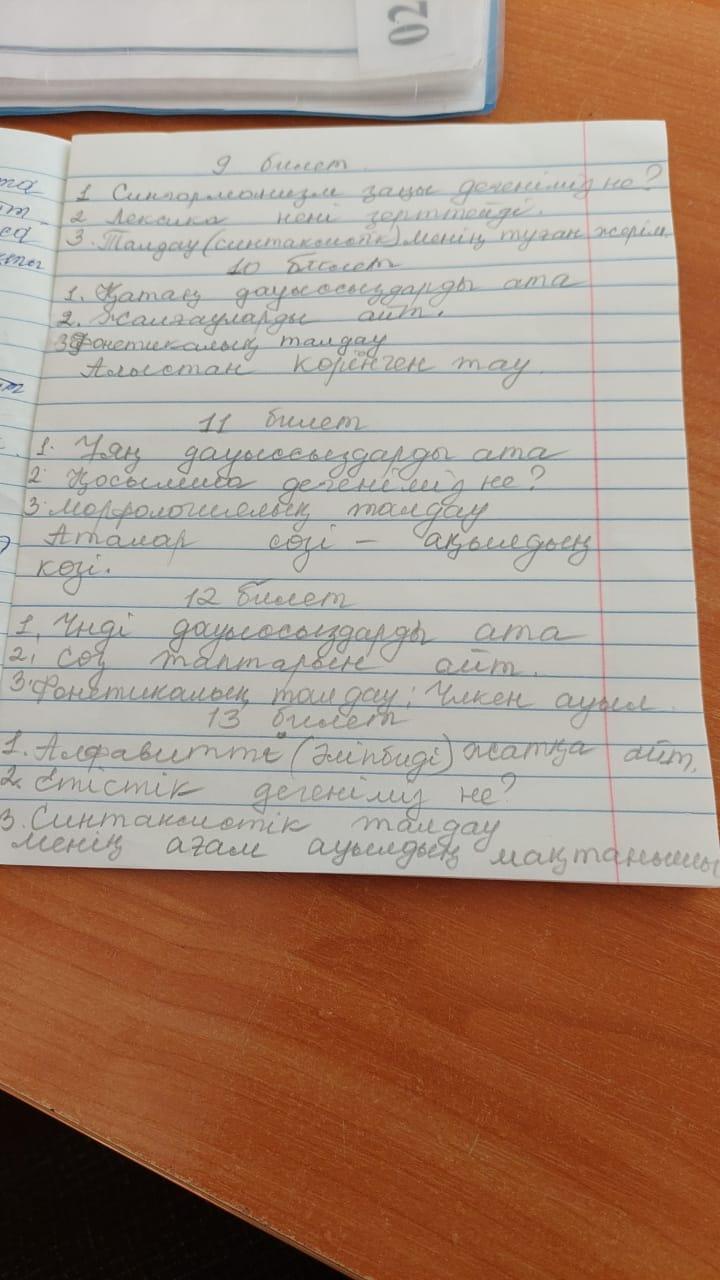 02
9 билет
1 Сингормонизм заңы дегеніміз не?
2 Лексика нені зерттейді.
3. Талдау (синтаксистік) менің туған жерім.
10 билет
1. Қатаң дауыссыздарды ата
2. Жалғауларды айт.
3 Фонетикалық талдау
Алыстан көрінген тау.
11 билет
1. Ұяң дауыссыздарды ата
2. Қосымша дегеніміз не?
3. морфологиялық талдау
Аталар сөзі – ақылдың
көзі.
12 билет
1. Үнді дауыссыздарды ата
2. Сөз таптарын айт.
3. Фонетикалық талдау: Үлкен ауыл
13 билет
1. Алфавитті (Әліпбиді) жатқа айт.
2. Етістік дегеніміз не?
3. Синтаксистік талдау
менің ағам ауылдың мақтанышы